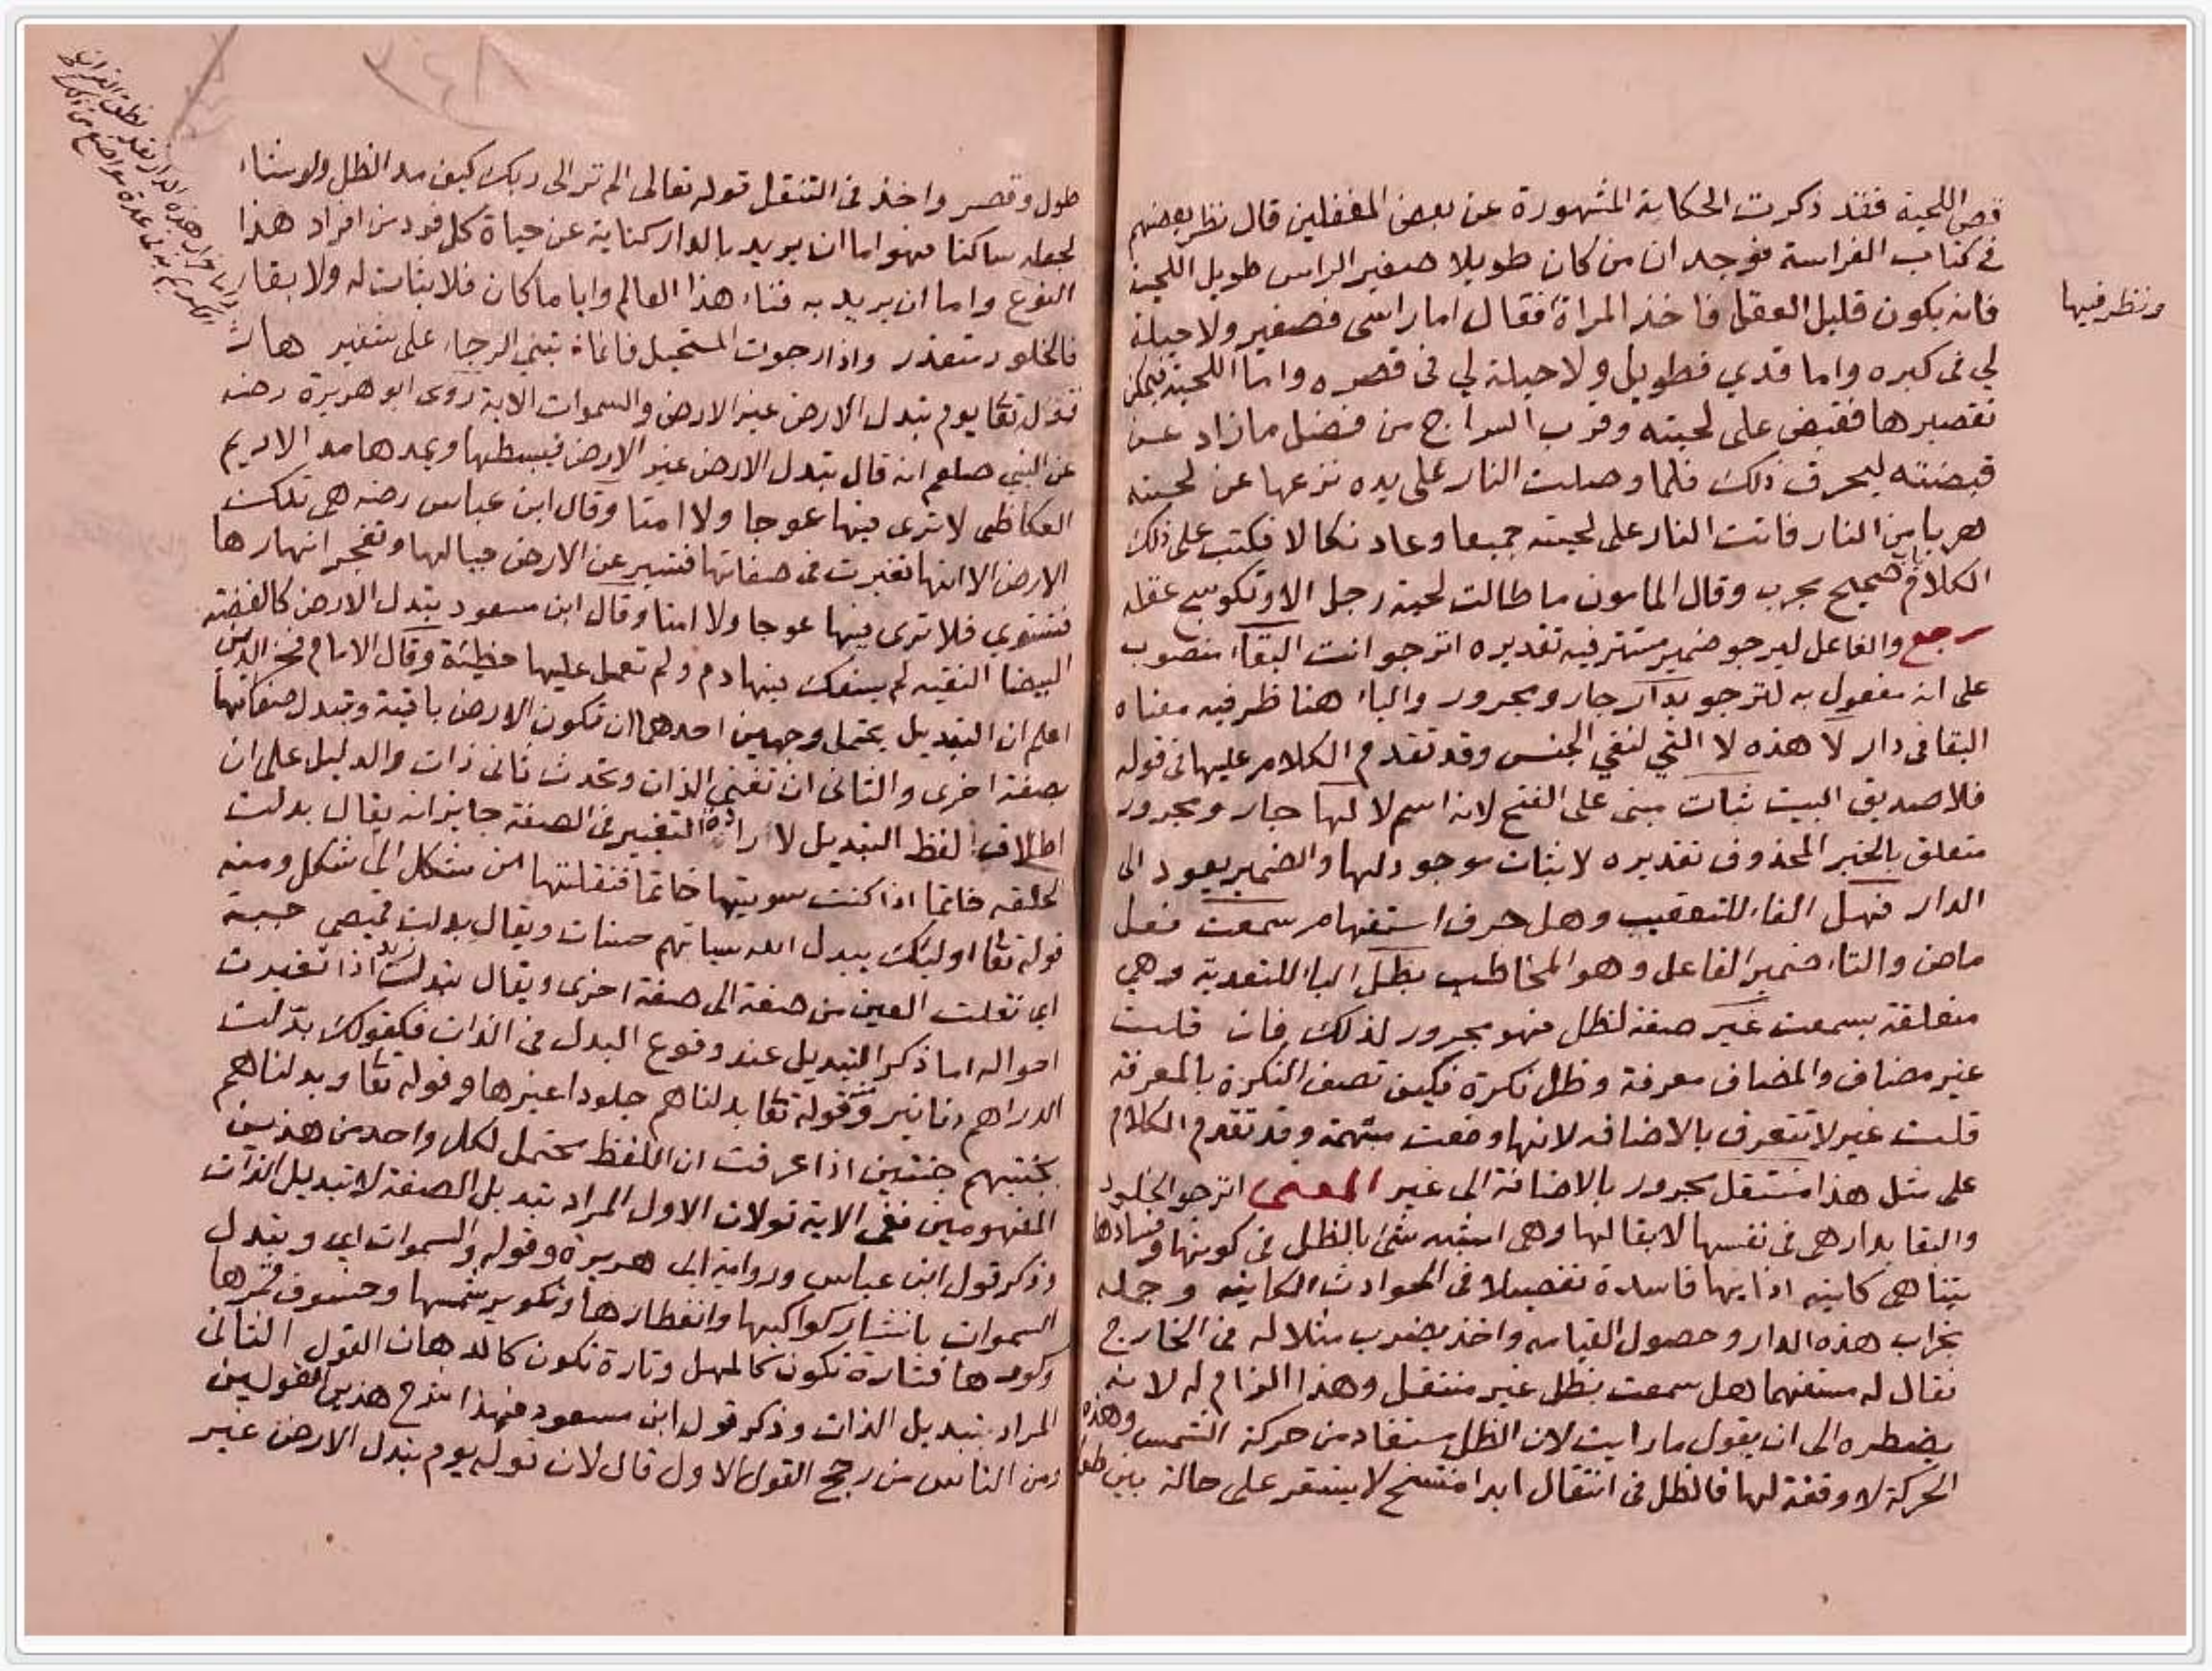 قص اللحية فقد ذكرت الحكاية المشهورة عن بعض المغفلين قال نظر بعضهم
في كتاب الفراسة فوجد ان من كان طويلا صغير الراس طويل اللحية
فانه يكون قليل العقل فاخذ المراة فقال اما راسى فصغير ولا حيلة
ونظر فيها
لي فى كبره واما قدي فطويل ولا حيلة لي فى قصره واما اللحية فيمكن
تقصيرها فقبض على لحيته وقرب السراج من فضل مازاد عن
قبضته ليحرق ذلك فلما وصلت النار على يده نزعها عن لحيته
هربا من النار فاتت النار على لحيته جميعا وعاد نكالا فكتب على ذلك
الكلام صحيح مجرب وقال المامون ما طالت لحية رجل الا وتكوسج عقله
رجع والفاعل ليرجو ضمير مستتر فيه تقديره اترجو انت البقاء منصوب
على انه مفعول به لترجو بدار جار ومجرور والباء هنا ظرفيه معناه
البقا فى دار لا هذه لا التي لنفي الجنس وقد تقدم الكلام عليها فى قوله
فلا صديق البيت ثبات مبنى على الفتح لانه اسم لا لها جار ومجرور
متعلق بالخبر المحذوف تقديره لا ثبات موجود لها والضمير يعود الى
الدار فهل الفاء للتعقيب وهل حرف استفهام سمعت فعل
ماض والتاء ضمير الفاعل وهو المخاطب بظل الباء للتعدية وهي
متعلقة بسمعت غير صفة لظل فهو مجرور لذلك فان قلت
غير مضاف والمضاف معرفة وظل نكرة فكيف تصف النكرة بالمعرفة
قلت غير لا تتعرف بالاضافه لانها وضعت مبهمة وقد تقدم الكلام
على مثل هذا منتقل مجرور بالاضافة الى غير المعنى اترجو الخلود
والبقا بدار هى فى نفسها لا بقا لها وهى اشبه شئ بالظل فى كونها وفسادها
بينا هى كاينه اذا بها فاسدة تفصيلا فى الحوادث الكاينه وجمله
بخراب هذه الدار وحصول القيامه واخذ يضرب مثلا له فى الخارج
فقال له مستفهما هل سمعت بظل غير منتقل وهذا الزام له لانه
يضطره الى ان يقول ما رايت لان الظل مستفاد من حركة الشمس وهذه
الحركة لا وقفة لها فالظل فى انتقال ابدا منتسخ لا يستقر على حالة بين طول
٢٤٨
طول وقصر واخذ فى التنقل قوله تعالى الم تر الى ربك كيف مد الظل ولو شاء
لجعله ساكنا فهو اما ان يريد بالدار كناية عن حياة كل فرد من افراد هذا
النوع واما ان يريد به فناء هذا العالم وايا ما كان فلا ثبات له ولا بقاء
فالخلود متعذر واذا رجوت المستحيل فانما تبني الرجاء على شفير هار
قوله تعا يوم تبدل الارض غير الارض والسموات الاية روى ابو هريرة رضه
عن النبي صلعم انه قال تبدل الارض غير الارض فيبسطها ويمدها مد الاديم
العكاظي لا ترى فيها عوجا ولا امتا وقال ابن عباس رضه هى تلك
الارض الا انها تغيرت فى صفاتها فتسير عن الارض جبالها وتفجر انهارها
فتستوي فلا ترى فيها عوجا ولا امتا وقال ابن مسعود تبدل الارض كالفضة
البيضا النقيه لم يسفك فيها دم ولم تعمل عليها خطيئة وقال الامام فخر الدين
اعلم ان التبديل يحتمل وجهين احدهما ان تكون الارض باقية وتتبدل صفاتها
بصفة اخرى والثانى ان تفنى الذات وتحدث ثانى ذات والدليل على ان
اطلاق لفظ التبديل لارادة التغيير فى الصفة جايز انه يقال بدلت
الحلقه خاتما اذا كنت سويتها خاتما فنقلتها من شكل الى شكل ومنه
قوله تعا اوليك يبدل الله سياتهم حسنات ويقال بدلت قميصى جبة
اي نقلت العين من صفة الى صفة اخرى ويقال تبدلت اذا تغيرت
احواله اما ذكر التبديل عند وقوع البدل فى الذات فكقولك بدّلت
الدراهم دنانير وقوله تعا بدلناهم جلودا غيرها وقوله تعا وبدلناهم
بجنتيهم جنتين اذا عرفت ان اللفظ محتمل لكل واحد من هذين
المفهومين ففى الاية قولان الاول المراد تبديل الصفة لا تبديل الذات
وذكر قول ابن عباس ورواية ابى هريرة وقوله والسموات اي وتبدل
السموات بانتشار كواكبها وانفطارها وتكوير شمسها وخسوف قمرها
وكونها فتارة تكون كالمهل وتارة تكون كالدهان القول الثانى
المراد تبديل الذات وذكر قول ابن مسعود فهذا شرح هذين القولين
ومن الناس من رجح القول الاول قال لان قوله يوم تبدل الارض غير